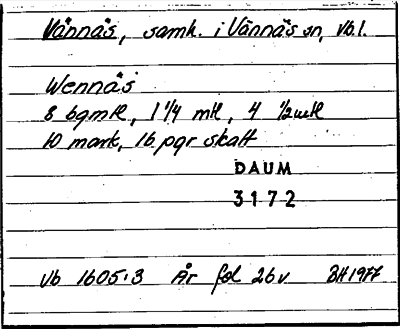 Vännäs, samh. i Vännäs sn, Vb.l.
Wennäs
8 bgmtl, 1 1/4 mtl, 4 1/2 mtl
10 mark, 16 pgr skatt
DAUM
3172
Vb 1605:3 År fol 26v BH 1977